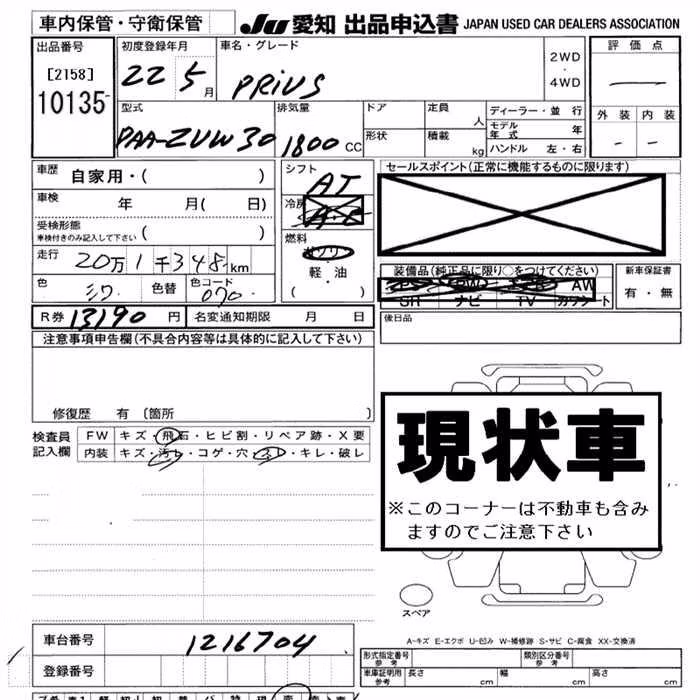 車内保管・守衛保管
JU 愛知 出品申込書 JAPAN USED CAR DEALERS ASSOCIATION
出品番号 初度登録年月 車名・グレード 2WD・4WD 評価点
[2158] 10135 22 5月 PRIUS
外装 内装
型式 排気量 ドア 定員 人 ディーラー・並行
PAA-ZVW30 1800 CC 形状 積載 kg モデル年式 年
ハンドル 左・右
車歴 自家用・( ) シフト AT セールスポイント(正常に機能するものに限ります)
車検 年 月( 日) 冷房 A・C
受検形態 車検付きのみ記入して下さい ( ) 燃料 ガソリン
走行 20万1千348km 軽・油 装備品(純正品に限り○をつけてください) 新車保証書
色 シロ 色替 色コード 070 ( ) PS PW SR AW 有・無
GH ナビ TV カワシート
R券 13190円 名変通知期限 月 日 後日品
注意事項申告欄(不具合内容等は具体的に記入して下さい)
修復歴 有〔箇所 〕
検査員記入欄 FW キズ・飛石・ヒビ割・リペア跡・X要
内装 キズ・汚レ・コゲ・穴・スレ・キレ・破レ
現状車
※このコーナーは不動車も含み
ますのでご注意下さい
スペア
A-キズ E-エクボ U-凹み W-補修跡 S-サビ C-腐食 XX-交換済
車台番号 1216704 形式指定番号 参考 類別区分番号 参考
登録番号 車庫証明用 参考 長さ cm 幅 cm 高さ cm